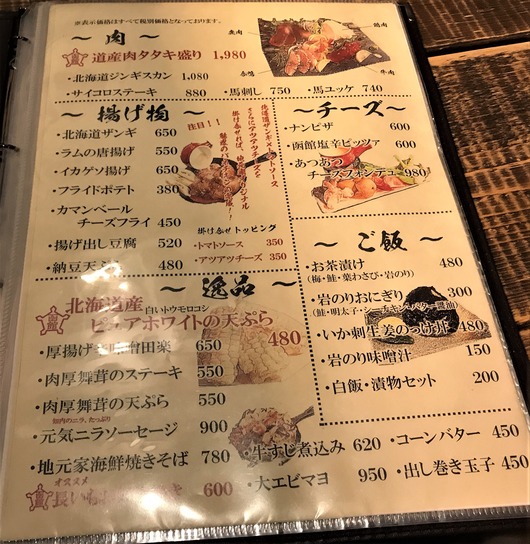 ※表示価格はすべて税別価格となっております。
～ 肉 ～
道産肉タタキ盛り 1,980
・北海道ジンギスカン 1,080
・サイコロステーキ 880
・馬刺し 750
・馬ユッケ 740
～ 揚げ物 ～
・北海道ザンギ 650
・ラムの唐揚げ 550
・イカゲソ揚げ 650
・フライドポテト 380
・カマンベール
チーズフライ 450
・揚げ出し豆腐 520
・納豆天ぷら 480
注目！！
掛けるせトッピング
・トマトソース 350
・アツアツチーズ 350
～ チーズ ～
・ナンピザ 600
・函館塩辛ピッツァ 600
・あつあつ
チーズフォンデュ 980
～ ご飯 ～
・お茶漬け 480
(梅・鮭・葉わさび・岩のり)
・岩のりおにぎり 300
・いか刺生姜のっけ丼 480
・岩のり味噌汁 150
・白飯・漬物セット 200
～ 逸品 ～
北海道産 白いトウモロコシ
ピュアホワイトの天ぷら
480
・厚揚げ 味噌田楽 650
・肉厚舞茸のステーキ 550
・肉厚舞茸の天ぷら 550
・元気ニラソーセージ 900
・地元家海鮮焼きそば 780
オススメ
600
・牛すじ煮込み 620
・コーンバター 450
・大エビマヨ 950
・出し巻き玉子 450